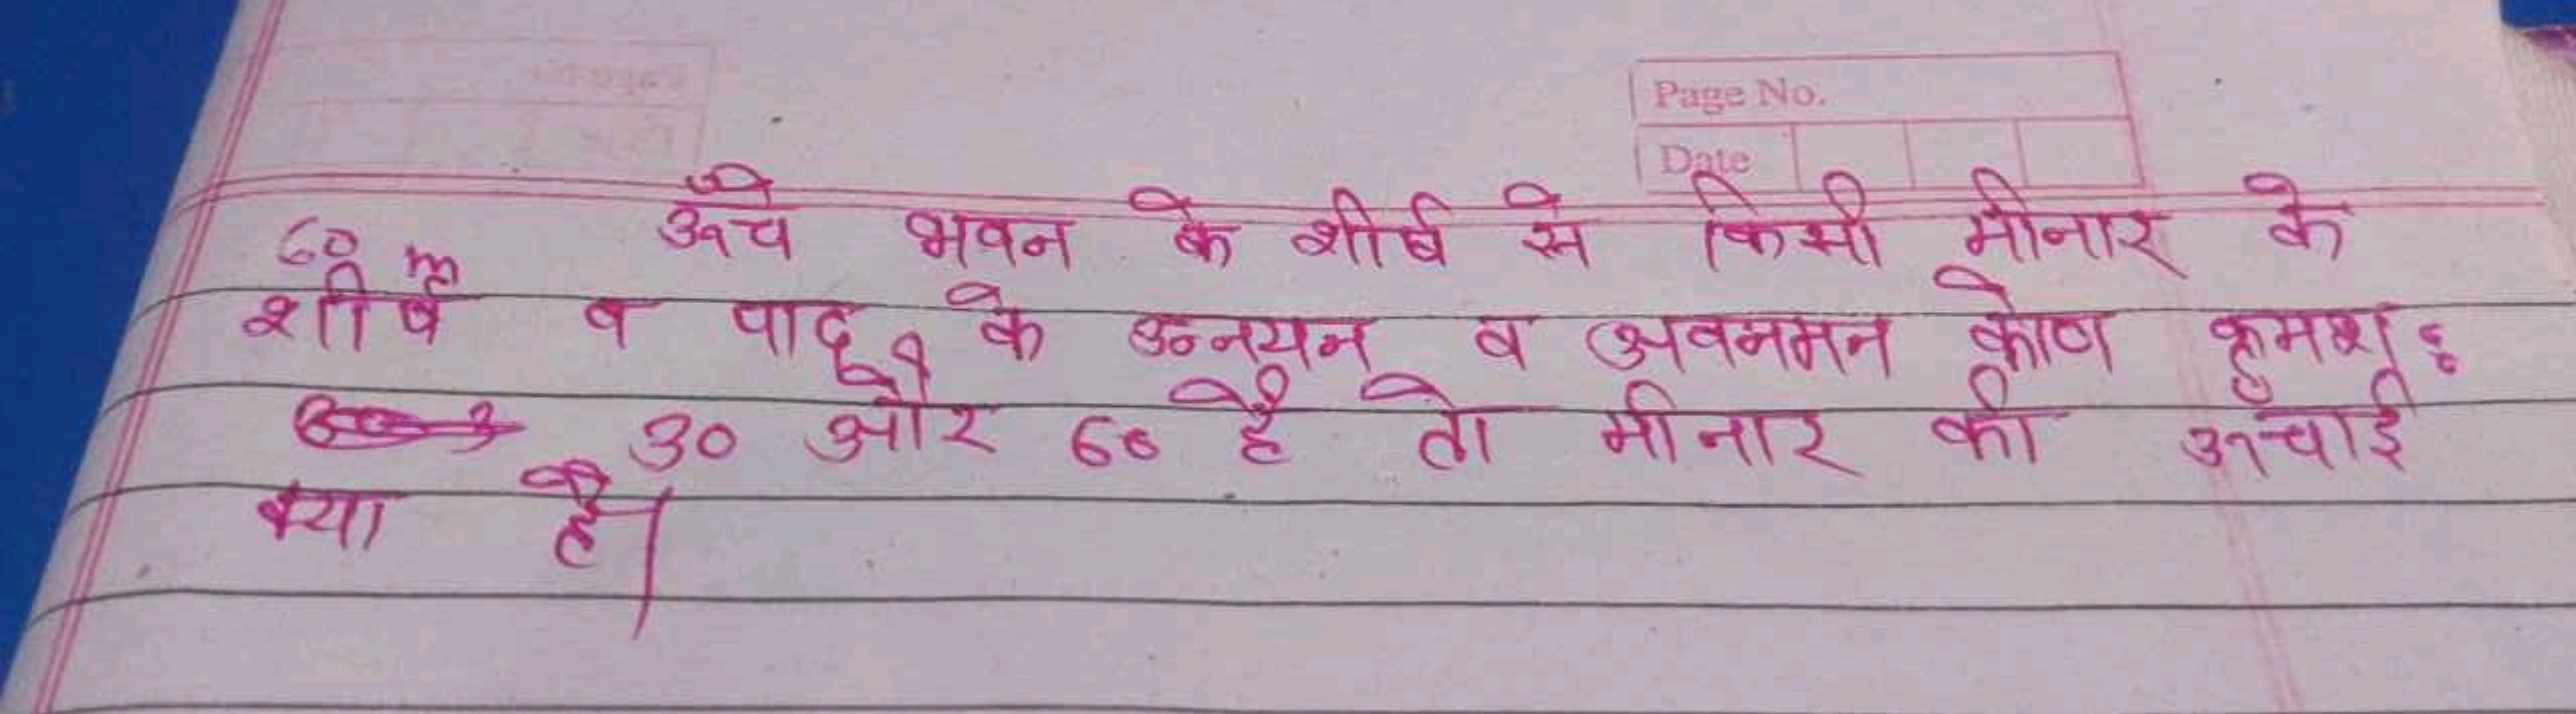 Page No.
Date
60 m ऊचे भवन के शीर्ष से किसी मीनार के
शीर्ष व पाद के उन्नयन व अवनमन कोण क्रमश:
30 और 60 है तो मीनार की ऊचाई
क्या है।